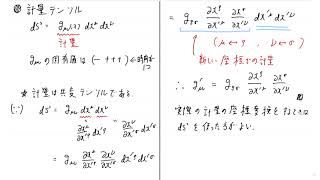 ◎ 計量テンソル
ds² = gμν(x) dx^μ dx^ν
計量
gμνの固有値は (- + + +) ← 時間が1つ
* 計量は共変テンソルである。
(∵) ds² = gμν dx^μ dx^ν
∂x^μ/∂x'^ρ dx'^ρ = ∂x^ν/∂x'^σ dx'^σ
= gμν ∂x^μ/∂x'^ρ ∂x^ν/∂x'^σ dx'^ρ dx'^σ
= gρσ ∂x^ρ/∂x'^μ ∂x^σ/∂x'^ν dx'^μ dx'^ν
新しい座標での計量 (μ↔ρ, ν↔σ)
∴ g'μν = gρσ ∂x^ρ/∂x'^μ ∂x^σ/∂x'^ν
実際の計量の座標変換をするときは
ds²を使った方がよい.